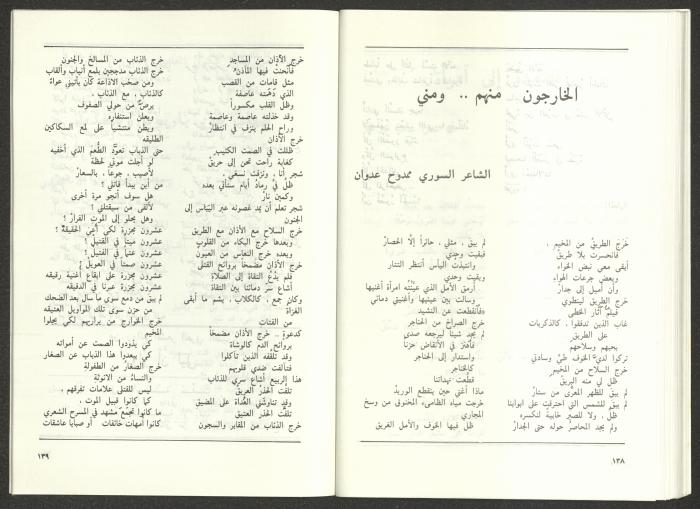 الخارجون منهم .. ومني
الشاعر السوري ممدوح عدوان
خَرَجَ الطريقُ من المخيمِ
فانحسرت بلا طريق
أبقى معي نبض الخواء
وبعض جرعات الهواء
وأن أميل إلى جدار
خرج الطريق لينطوي
غاب الذين تدفقوا ، كالذكريات
على الطريق
بحبهم وسلاحهم
تركوا لديَّ الخوف
خرج السلاح من المخيم
ظل لي منه البريق
لم يبق للظهر المعرّى من ستار
لم يبق للشمس التي احترقت على ابوابنا
ظل . ولا للصبر خابية لنكسره
ولم يجد المحاصر حوله حتى الجدار
لم يبق ، مثلي ، حائراً إلّا الحصار
فبقيت وحدي
وانتبذت اليأس أنتظر التتار
وبقيت وحدي
أرمق الأمل الذي عينّته امرأة أغنيها
وسالت بين عينيها وأغنيتي دمائي
فانقطعت عن النشيد
خرج الصراخ من الحناجر
لم يجد شيئاً ليرجعه صدى
واستدار إلى الحناجر
كالخناجر
قطّعت تنهداتنا
ماذا أغني حين ينقطع الوريد
خرجت مياه الظامىء المخنوق من وسخ
المجاري
ظل فيها الخوف والأمل الغريق
١٣٨
خرج الآذان من المساجد
فانحنت فيها المآذن
مثل قامات من القصب
الذي دهمته عاصفة
وظل القلب مكسوراً
وقد خذلته عاصمة وعاصمة
وراح الحلم ينزف في انتظار
خرج الآذان
ظللت في الصمت الكئيب
كغابة راحت تحن إلى حريق
شجر أنا ، ونزفت نسغي ،
ظل لي رماد أيام ستأتي بعده
وكمين نار
شجر تعلم أن يمد غصونه عبر اليباس إلى
الجنون
خرج السلاح مع الآذان مع الطريق
وبعدها خرج البكاء من القلوب
وبعده خرج النعاس من العيون
خرج الآذان مضمخاً بروائح القتلى
فلم يدع التقاة إلى الصلاة
أشاع سر دمائنا بين التقاة
وكان جمع ، كالكلاب ، يشم ما أبقى
الغزاة
من الفتات
كدعوة .. خرج الآذان مضمخاً
بروائح الدم كالوشاة
وقد تلقفه الذين تآكلوا
فتآلفت ضدي قلوبهم
هذا الربيع أشاع سري للذئاب
تلفت الحذر العريق
وقد تناوشني العداة على المضيق
تلفت الحذر العتيق
خرج الذئاب من المقابر والسجون
خرج الذئاب من المسالخ والجنون
خرج الذئاب مدججين بلمع أنياب وألقاب
ومن صخب الاذاعة كان يأتيني عواء
كالذئاب . مع الذئاب .
يرص من حولي الصفوف
ويعلن استنفاره
ويظل منتشياً على لمع السكاكين
الطليقه
حتى الذباب تعوَّد الطُعمَ الذي أخفيه
لو أجلت موتي لحظة
لأصيب ، جوعا ، بالسعار
من أين يبدأ قاتلي !
هل سوف أنجو مرة أخرى
لألقى من سيقتلني !
وهل يحلو إلى الموت الفرار !
عشرون مجزرة لكي أعي الحقيقة !
عشرون ميتاً في القتيل !
عشرون صمتاً في العويل !
عشرون مجزرة على ايقاع أغنية رقيقه
عشرون مجزرة عبرنا في الدقيقه
لم يبق من دمع سوى ما سال بعد الضحك
من حزن سوى تلك المواويل العتيقه
خرج الخوارج من براريهم لكي يجلوا
المخيم
كي يذودوا الصمت عن أمواته
كي يبعدوا هذا الذباب عن الصغار
خرج الصغار من الطفولة
والنساء من الانوثة
ليس للقتلى علامات تفرقهم ،
كما كانوا قبيل الموت .
ما كانوا تجمّع مشهد في المسرح الشعري
كانوا أمهات خائفات أو صبايا عاشقات
١٣٩